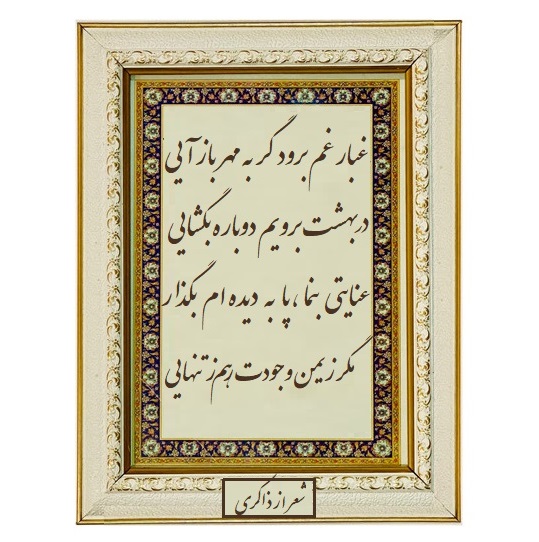 غبار غم برود گر به مهر بازآیی
در بهشت برویم دوباره بگشایی
عنایتی بنما، پا به دیده ام بگذار
مگر ز یمن وجودت رهم ز تنهایی
شعر از ذاکری